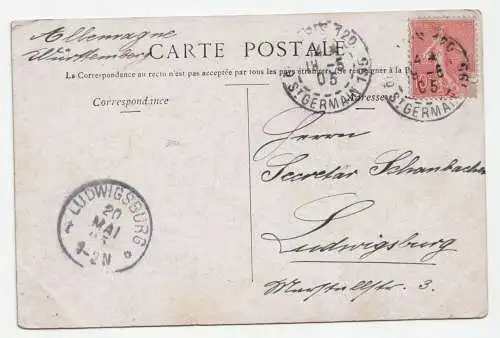 Allemagne
Württemberg
CARTE POSTALE
La Correspondance au recto n'est pas acceptée par tous les pays étrangers. (Se renseigner à la P
Correspondance
Adresse
PARIS 120
18 -5
05
ST GERMAIN 199
120
-5
05
ST GERMAIN 199
Herrn
Secretär Schanbacher
Ludwigsburg
Marstallstr. 3.
LUDWIGSBURG
20
MAI
1-2N